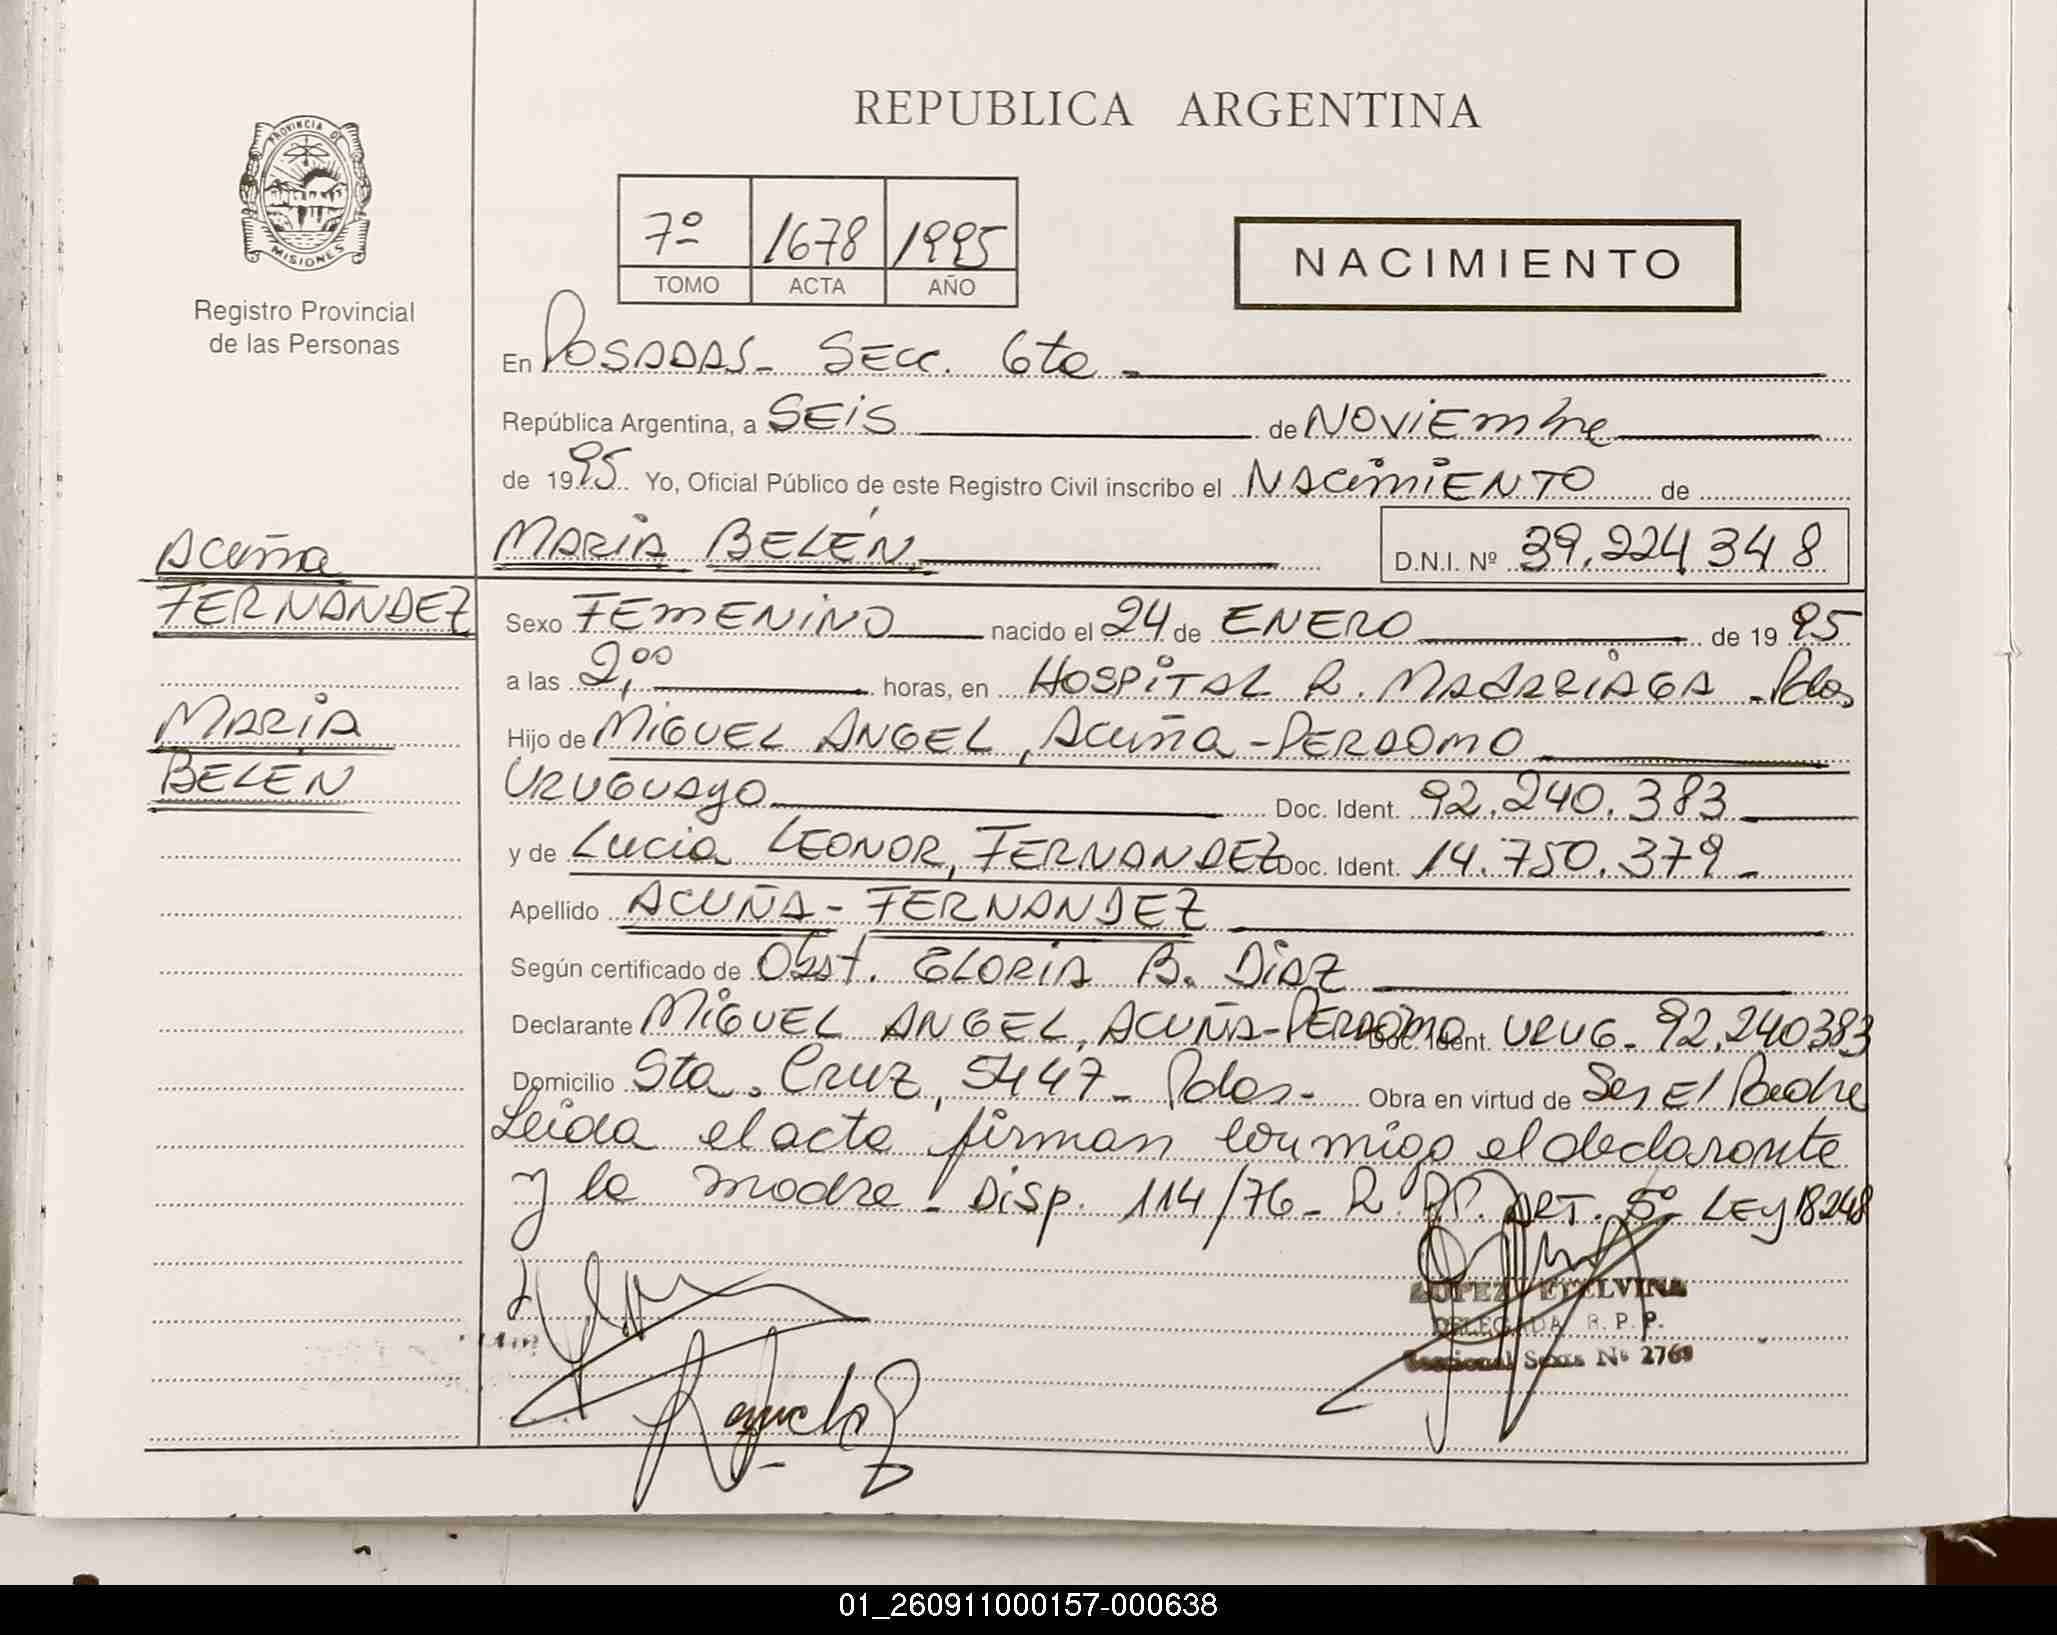 REPUBLICA ARGENTINA
PROVINCIA DE
MISIONES
Registro Provincial
de las Personas
7º 1678 1995
TOMO ACTA AÑO
NACIMIENTO
En POSADAS - SECC. 6ta -
República Argentina, a SEIS de NOVIEMbre
de 1995 Yo, Oficial Público de este Registro Civil inscribo el NACIMIENTO de
ACUÑA
FERNANDEZ
MARIA
BELEN
MARIA BELÉN D.N.I. Nº 39.224.348
Sexo FEMENINO nacido el 24 de ENERO de 1995
a las 2,00 horas, en HOSPITAL R. MADARIAGA - Pdas
Hijo de MIGUEL ANGEL, ACUÑA - PERDOMO
URUGUAYO Doc. Ident. 92.240.383
y de LUCIA LEONOR, FERNANDEZ Doc. Ident. 14.750.379 -
Apellido ACUÑA - FERNANDEZ
Según certificado de Obst. GLORIA B. DIAZ
Declarante MIGUEL ANGEL, ACUÑA - PERDOMO Doc. Ident. URUG. 92.240383
Domicilio Sta. CRUZ, 5447 - Pdas - Obra en virtud de Ser El Padre
Leida el acta firman conmigo el declarante
y la madre - Disp. 114/76 - R.P.P. ART. 5º LEY 18248
LOPEZ ETELVINA
DELEGADA R. P. P.
Seccional Sexta Nº 2769
01_260911000157-000638